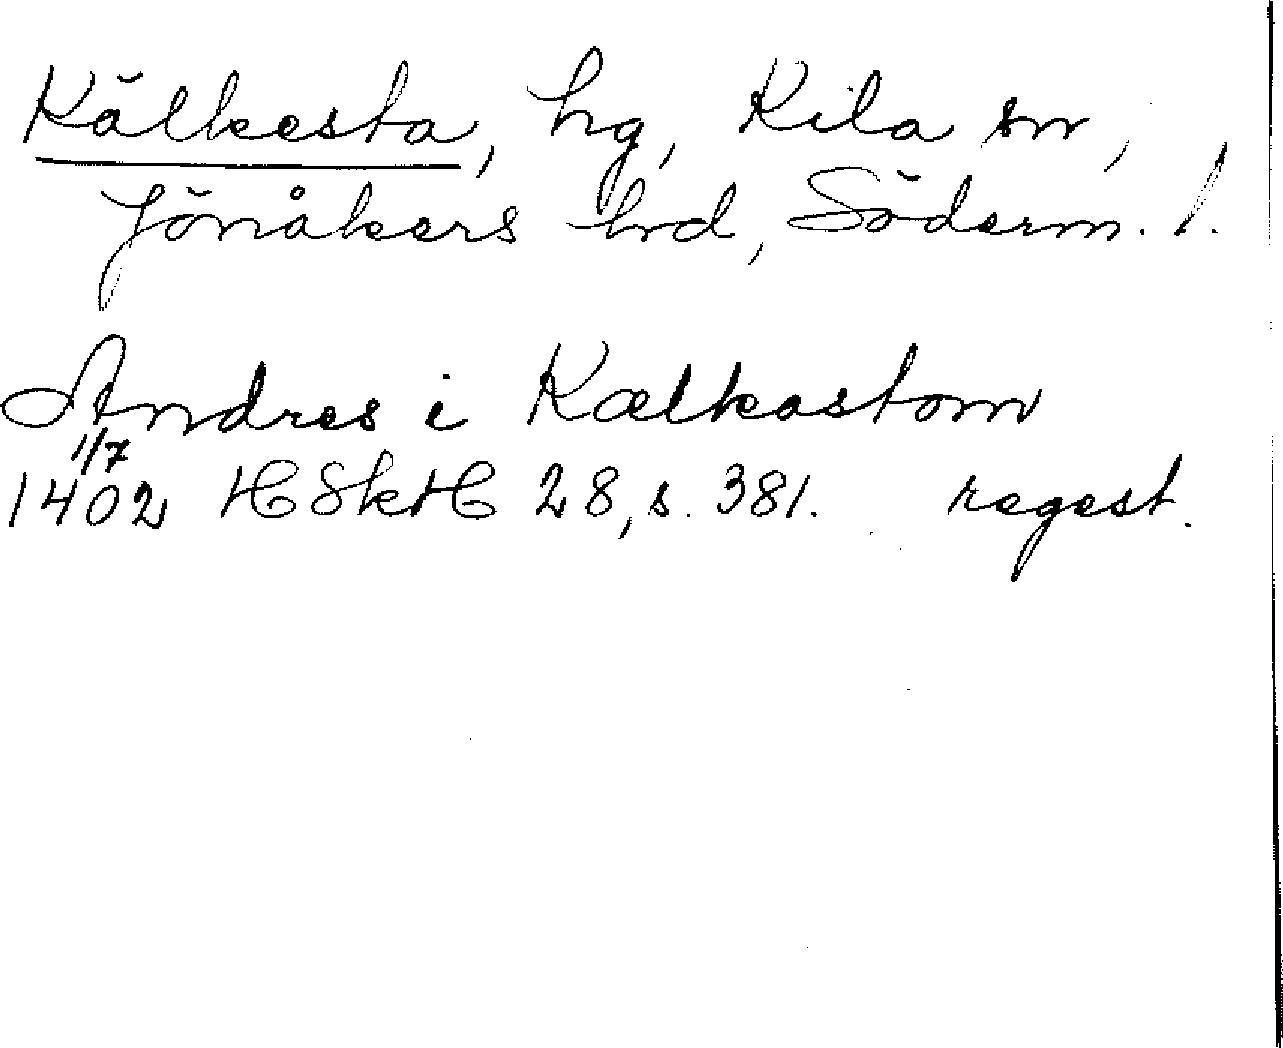 Kälkesta, hg, Kila sn,
Jönåkers hrd, Söderm. l.
Andres i Kælkastom
1/7
1402 HSkH 28, s. 381. regest.